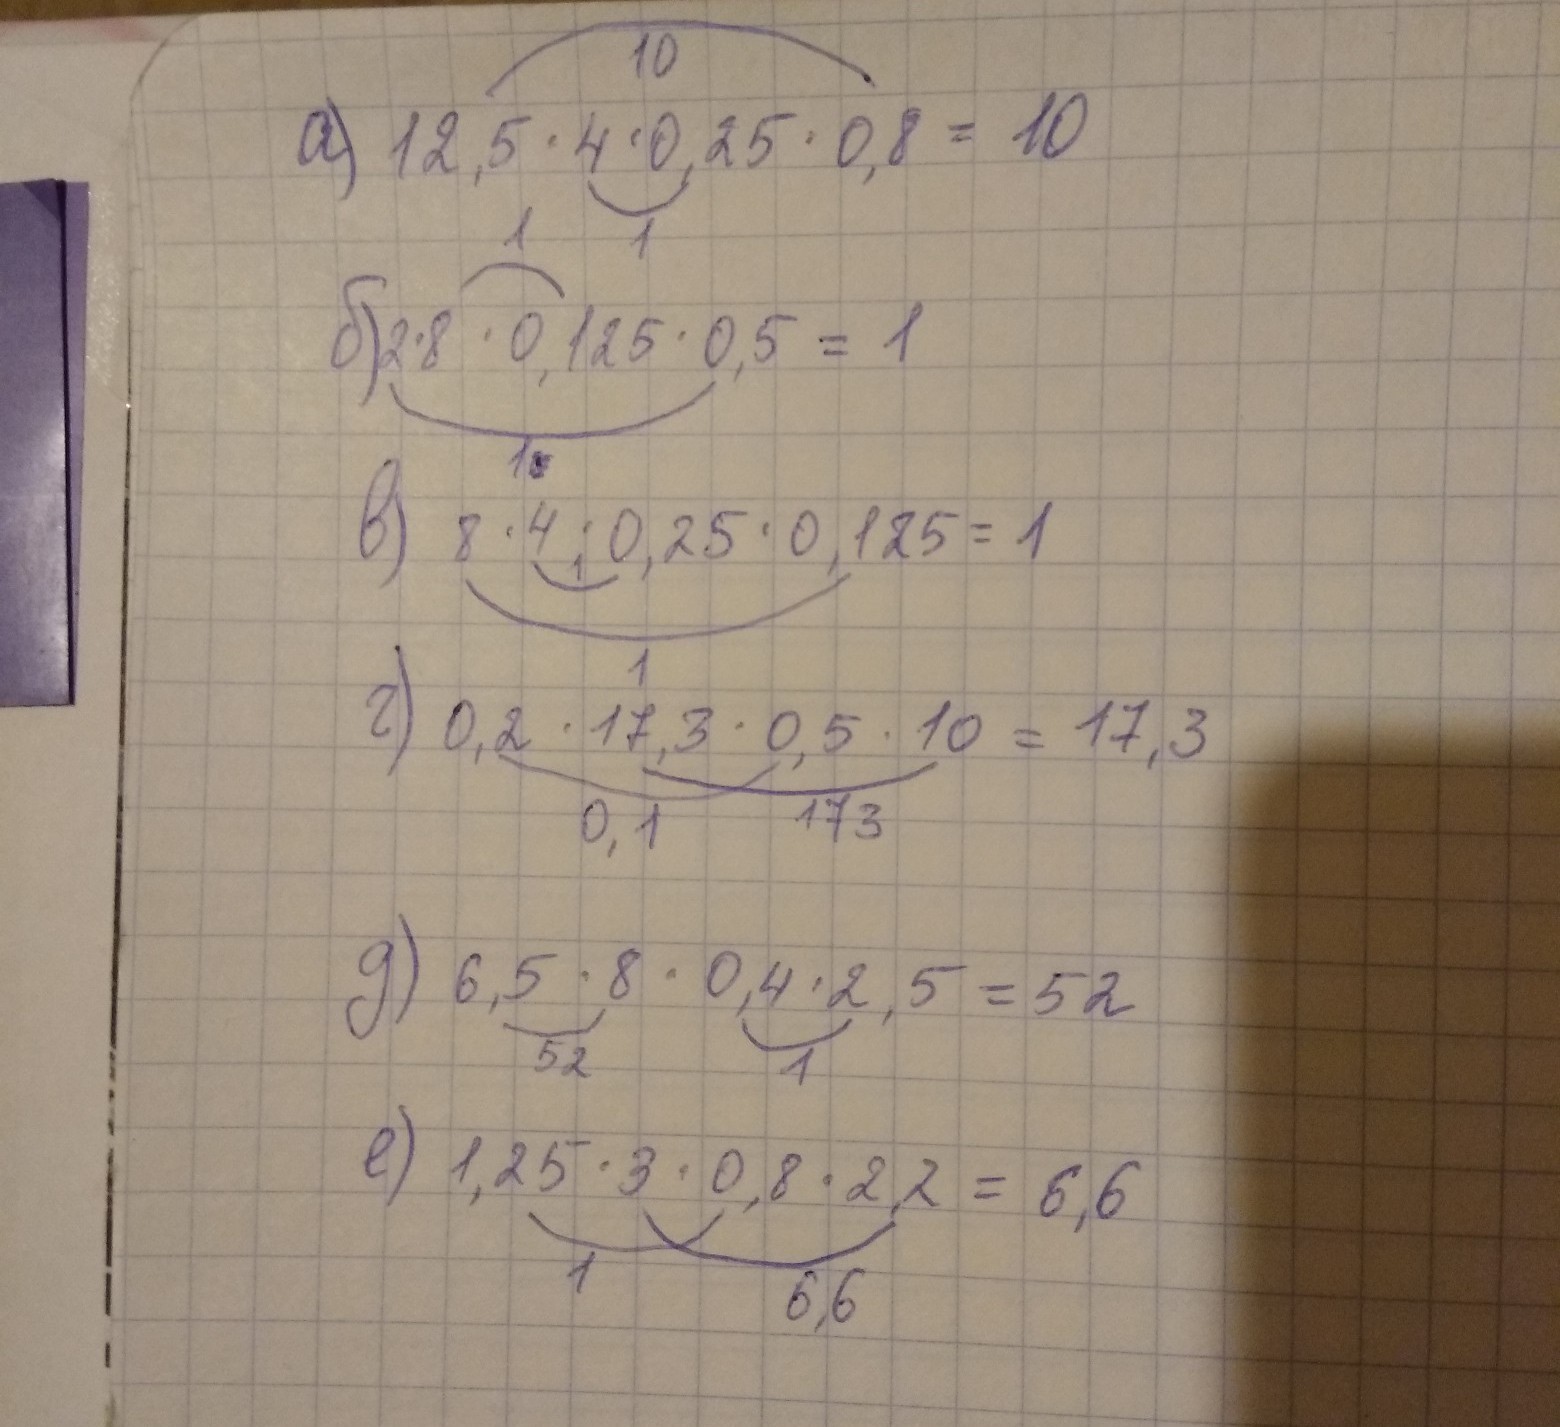 10
а) 12,5 · 4 · 0,25 · 0,8 = 10
1
1
б) 2 · 8 · 0,125 · 0,5 = 1
1
в) 8 · 4 · 0,25 · 0,125 = 1
1
1
г) 0,2 · 17,3 · 0,5 · 10 = 17,3
0,1 173
д) 6,5 · 8 · 0,4 · 2,5 = 52
52 1
е) 1,25 · 3 · 0,8 · 2,2 = 6,6
1 6,6